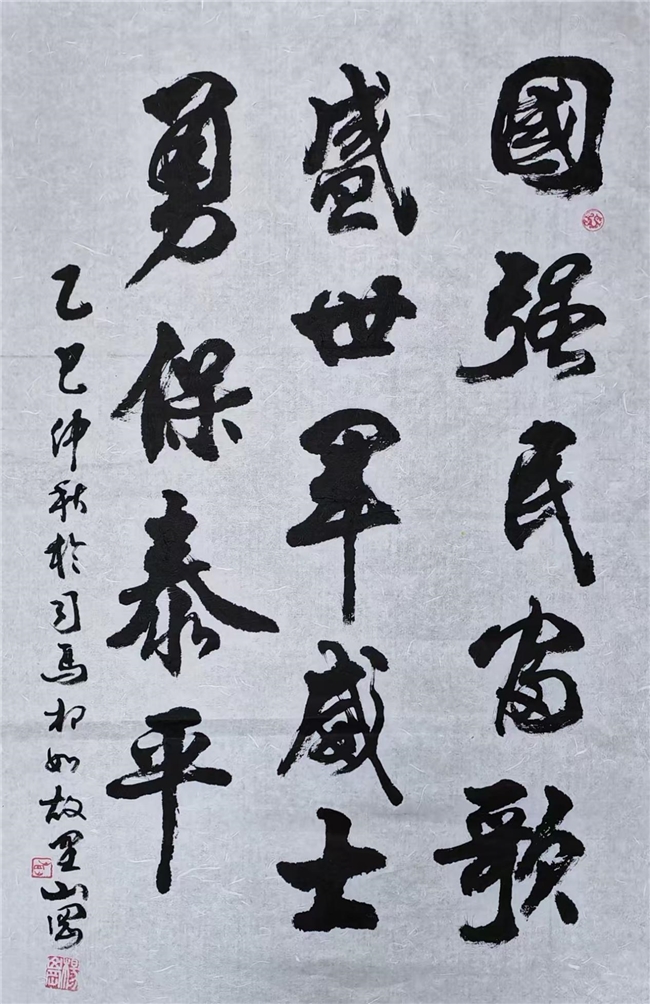 國强民富歌
盛世军威士
勇保泰平
乙巳仲秋於司馬相如故里山岗